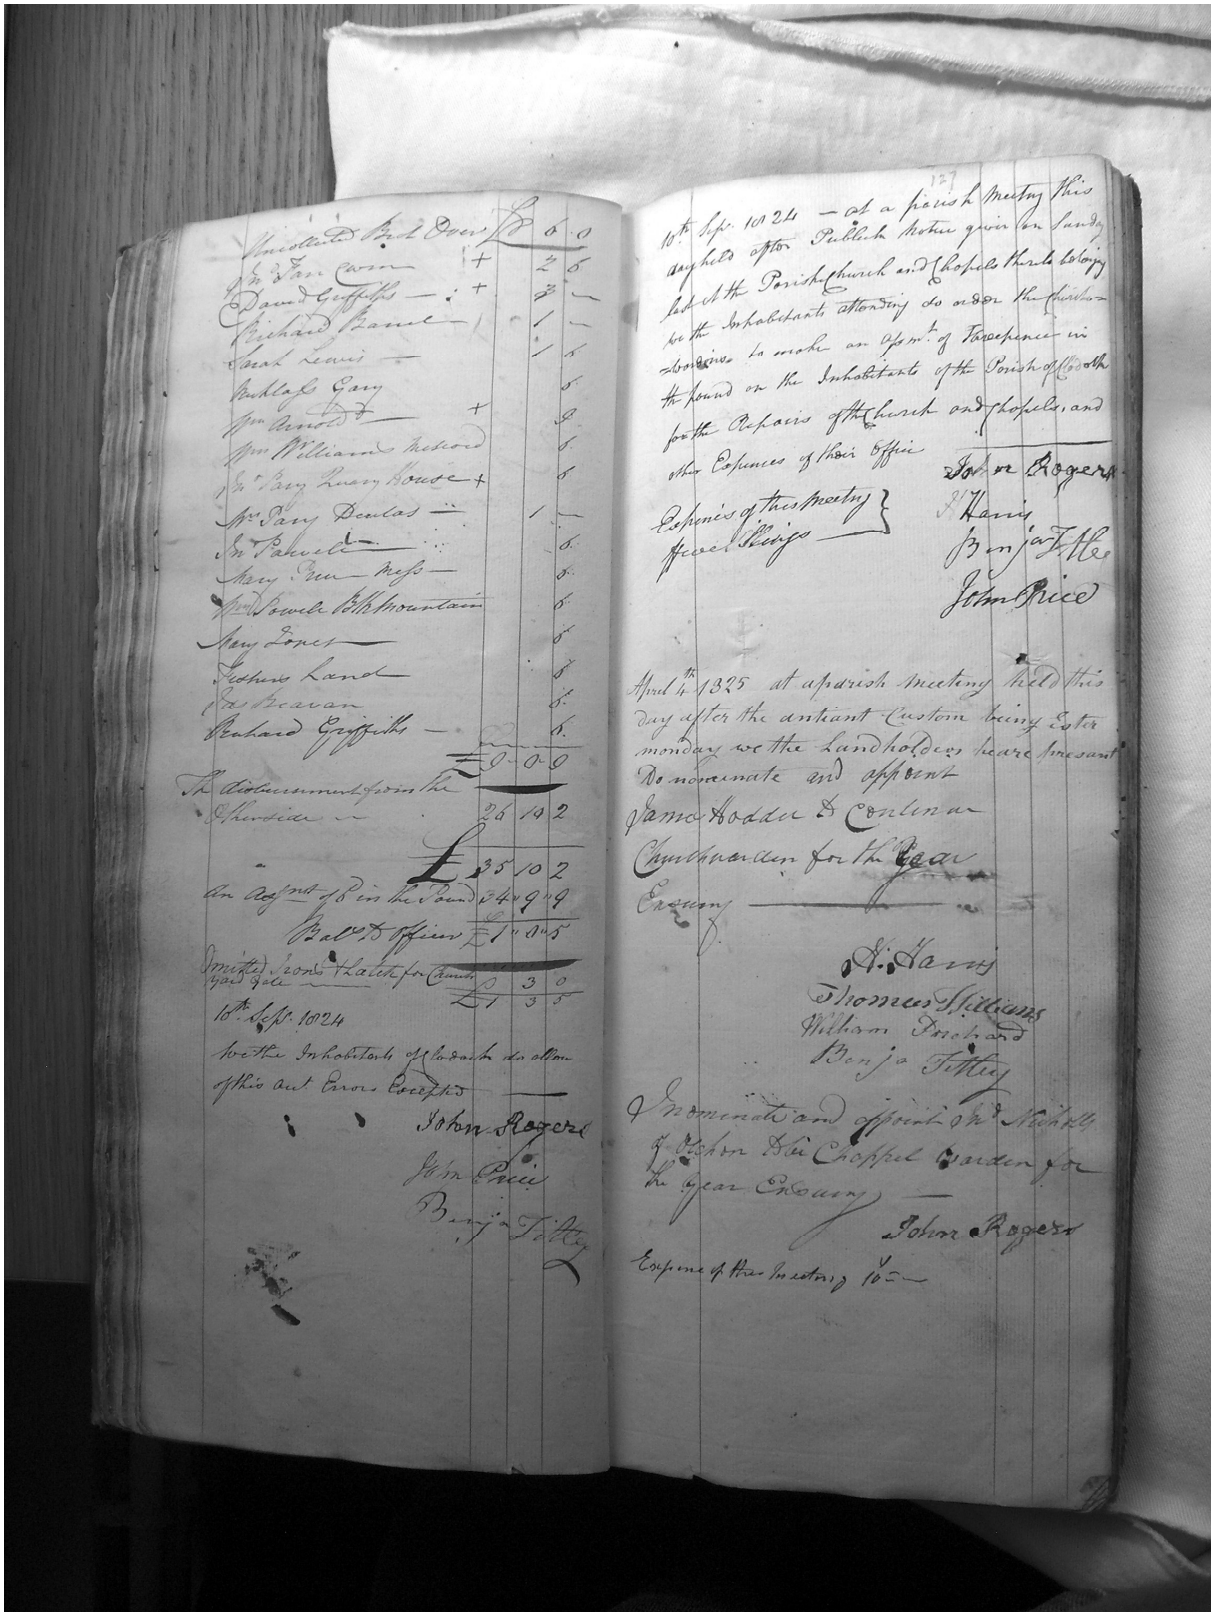 Uncollected Brot Over £8 6 0
Jno Farr Cwm + 2 6
David Griffiths + 3 —
Richard 1 —
Sarah Lewis — 1 6
6
Wm Arnold — + 9
Wm Williams 6
Jno Parry House + 6
Mrs Parry Deulas 1 —
Jno Powell 6
Mary 6
Wm Powell Blk Mountain 6
Mary Jones 6
Fishers Land 6
Jas Beavan 6
Richard Griffiths — 6
£9 0 0
The disbursement from the
Otherside 26 10 2
£ 35 10 2
an assmt of 6 in the Pound 34 " 9 " 9
Bale to officer £1 " 0 " 5
Omitted Irons & Latch for Church
yard Gate 0 3 0
£1 3 5
10th Sepr 1824
We the Inhabitants of Clodock do allow
of this act Errors Excepted —
John Rogers
John Price
Benja Fittey
127
10th Sepr 1824 — at a parish Meeting this
day held after Publick Notice given on Sunday
last at the Parish Church and Chapels thereto belonging
we the Inhabitants attending do order the Church=
=wardens to make an assmt of Threepence in
the pound on the Inhabitants of the Parish of Clodock
for the Repairs of the Church and Chapels, and
other Expences of their Office
John Rogers
Expences of this Meeting
H Harris
Benja Fittey
John Price
April 4th 1825 at a parish meeting held this
day after the antiant Custom being Ester
monday we the Landholders heare presant
Do nominate and appoint
James Hodder to Continue
Churchwarden for the Year
Ensuing —
H. Harris
Thomas Williams
William Prichard
Benja Fittey
I nominate and appoint Jno Nicholls
of Olchon to be Chappel warden for
the year Ensuing —
John Rogers
Expence of this Meeting 10s —